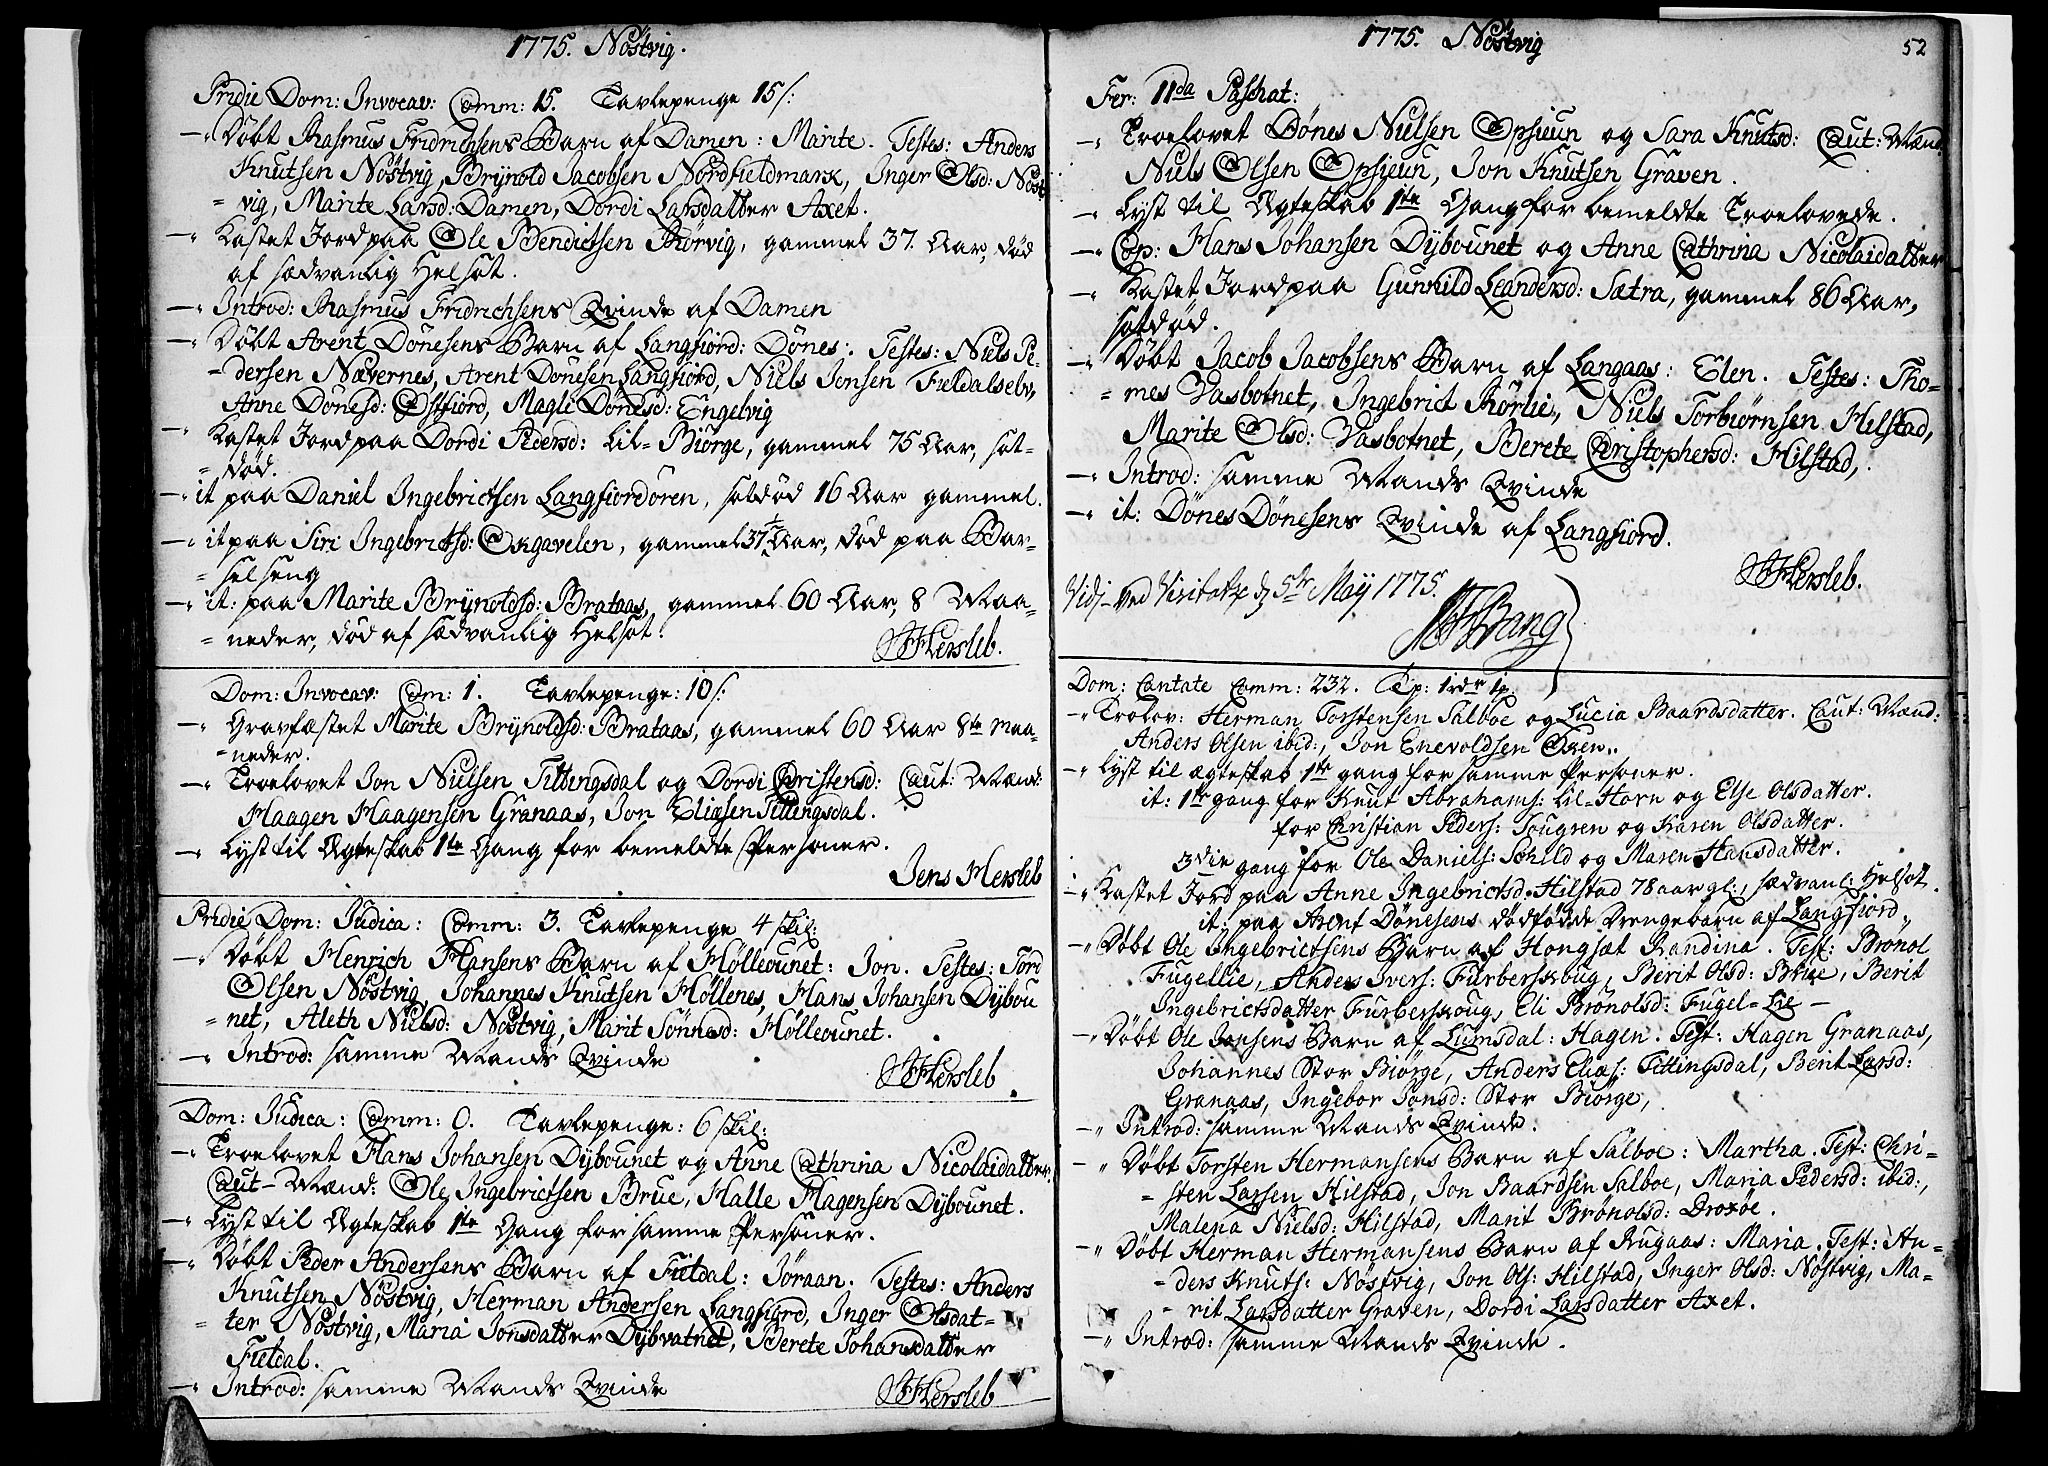 1775. Nöstvig.
Pridie Dom: Invocav: Comm: 15. Tavlepenge 15 s:
Döbt Rasmus Fridrichsens Barn af Damen: Marite. Testes: Anders
Knutsen Nöstvig, Brÿnold Jacobsen Nordfieldmark, Inger Olsd: Nöst
vig, Marite Larsd: Damen, Dordi Larsdatter Axet.
Kastet Jord paa Ole Bendictsen Rörvig, gammel 37. Aar, död
af sædvanlig Helsot.
Introd: Rasmus Fridrichsens Qvinde af Damen
Döbt Arent Dönesens Barn af Langfiord: Dönes. Testes: Niels Pe-
dersen Nævernes, Arent Dönesen Langfiord, Niels Jonsen Fieldalselv,
Anne Dönesd: Østfiord, Magli Dönesd: Engelvig
Kastet Jord paa Dordi Pedersd: Lil-Biörge, gammel 75 Aar, sot-
död.
it paa Daniel Ingebrictsen Langfiordören, sotdöd 16 Aar gammel.
it paa Siri Ingebrictsd: Oxgavelen, gammel 37½ Aar, död paa Bar-
selseng
it: paa Marite Brÿnoldsd: Brataas, gammel 60 Aar, 8 Maa-
neder, död af sædvanlig Helsot.
JFHersleb.
Dom: Invocav: Com: 1. Tavlepenge: 10 s:
Gravfæstet Marite Brÿnoldsd: Brataas, gammel 60 Aar 8te Maa-
neder.
Troelovet Jon Nielsen Tittingsdal og Dordi Christensd: Caut: Mænd:
Haagen Haagensen Granaas, Jon Eliæsen Tittingsdal.
Lyst til Ægteskab 1te Gang for bemeldte Personer.
Jens Hersleb
Pridie Dom: Judica: Comm: 3. Tavlepenge 4 skil:
Döbt Henrich Hansens Barn af Mölleounet: Jon. Testes: Tord
Olsen Nöstvig, Johannes Knutsen Möllenes, Hans Johansen Dÿbou
net, Aleth Nielsd: Nöstvig, Marit Sörnesd: Mölleounet.
Introd: samme Mands Qvinde
JFHersleb
Dom: Judica: Comm: 0. Tavlepenge: 6 skil:
Troelovet Hans Johansen Dÿbounet og Anne Cathrina Nicolaidatter.
Caut-Mænd: Ole Ingebrictsen Brue, Halle Hagensen Dÿbounet.
Lyst til Ægteskab 1te Gang for samme Personer.
Döbt Peder Andersens Barn af Fieldal: Jöraan. Testes: Anders
Knutsen Nöstvig, Herman Andersen Langfiord, Inger Olsdat-
ter Nöstvig, Maria Jonsdatter Dÿbvatnet, Berete Johansdatter
Fieldal.
Introd: samme Mands Qvinde
JFHersleb
1775. Nöstvig
52
Fer: IIda Paschat:
Troelovet Dönes Nielsen Opsieun og Sara Knutsd: Caut: Mænd:
Niels Olsen Opsieun, Jon Knutsen Graven.
Lyst til Ægteskab 1te Gang for bemeldte Troelovede.
Cop: Hans Johansen Dÿbounet og Anne Cathrina Nicolaidatter
Kastet Jord paa Gunnild Leandersd: Sætra, gammel 86 Aar,
sotdöd.
Döbt Jacob Jacobsens Barn af Langaas: Elen. Testes: Tho-
mes Vasbotnet, Ingebrict Rörlie, Niels Torbiörnsen Hilstad,
Marite Olsd: Vasbotnet, Berete Christophersd: Hilstad,
Introd: samme Mands Qvinde
it: Dönes Dönesens Qvinde af Langfiord.
JFHersleb.
Vidj ved Visitatze d 5te Maÿ 1775.
Bang
Dom: Cantate Comm: 232.
Trolov: Herman Torstensen Salboe og Lucia Baardsdatter. Caut: Mænd:
Anders Olsen ibid:, Jon Enevoldsen Oxen.
Lyst til ægteskab 1te gang for samme Personer.
it: 1te gang for Knut Abrahams: Lil-Horn og Else Olsdatter.
for Christian Peders: Tougren og Karen Olsdatter.
3die gang for Ole Daniels: Schild og Maren Hansdatter.
Kastet Jord paa Anne Ingebrictsd: Hilstad 78 aar gl:, sædvanl: Helsot.
it: paa Arent Dönesens dödfödde Drengebarn af Langfiord
Döbt Ole Ingebrictsens Barn af Hongsæt Randina. Test: Brönol
Fugellie, Anders Ivers: Furberskoug, Berit Olsd: Brue, Berit
Ingebrictsdatter Furberskoug, Eli Brönolsd: Fugel-Lie
Döbt Ole Jonsens Barn af Lumsdal: Hagen. Test: Hagen Granaas,
Johannes Stor Biörge, Anders Eliæs: Tittingsdal, Berit Larsd:
Granaas, Ingebor Jonsd: Stor Biörge,
Introd: samme Mands Qvinde.
Döbt Torsten Hermansens Barn af Salboe: Martha. Test: Chri-
sten Larsen Hilstad, Jon Baardsen Salboe, Maria Pedersd: ibid:,
Malena Nielsd: Hilstad, Marit Brönolsd: Droxöe.
Döbt Herman Hermansens Barn af Rugaas: Maria. Test: An-
ders Knuts: Nöstvig, Jon Ols: Hilstad, Inger Olsd: Nöstvig, Ma-
rit Larsdatter Graven, Dordi Larsdatter Axet.
Introd: samme Mands Qvinde.